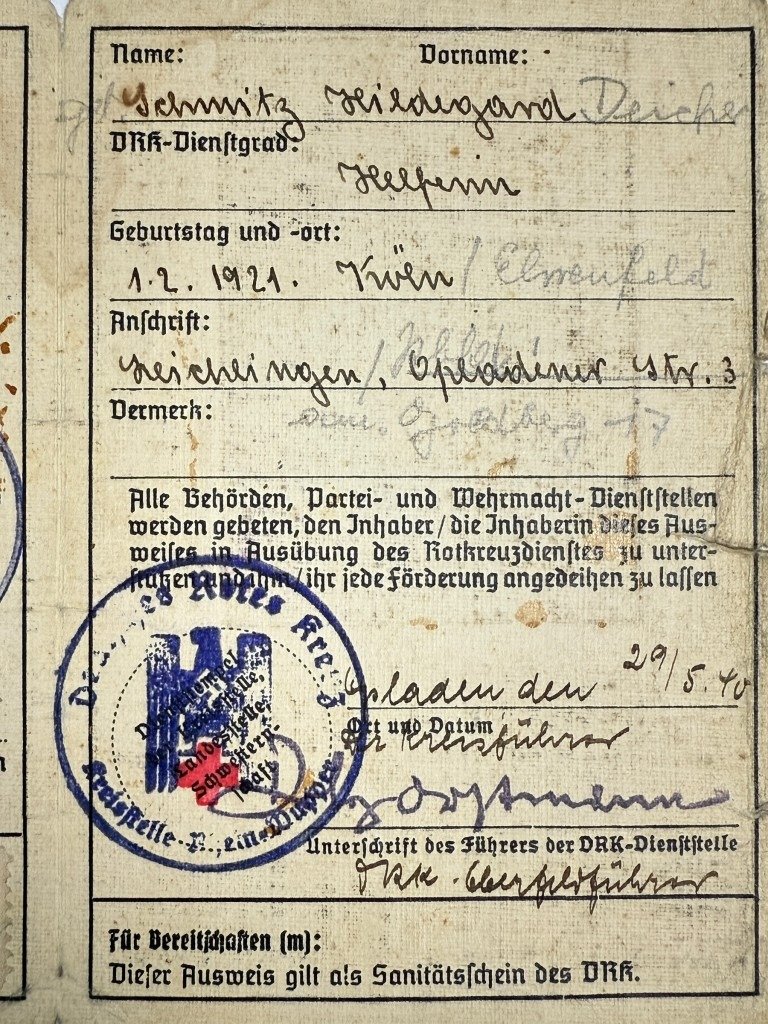 Name: Vorname:
Schmitz Hildegard
DRK-Dienstgrad:
Helferin
Geburtstag und -ort:
1.2. 1921. Köln
Anschrift:
Leichlingen, Opladener Str. 3
Vermerk:
Alle Behörden, Partei- und Wehrmacht-Dienststellen
werden gebeten, den Inhaber / die Inhaberin dieses Aus-
weises in Ausübung des Rotkreuzdienstes zu unter-
stützen und ihm / ihr jede Förderung angedeihen zu lassen
Deutsches Rotes Kreuz
Dienststempel
der Kreisstelle,
Landesstelle,
Schwestern-
schaft
Kreisstelle Rhein-Wupper
Opladen den 29/5.40
Ort und Datum
Der Kreisführer
Unterschrift des Führers der DRK-Dienststelle
DRK-Oberfeldführer
Für Bereitschaften (m):
Dieser Ausweis gilt als Sanitätsschein des DRK.